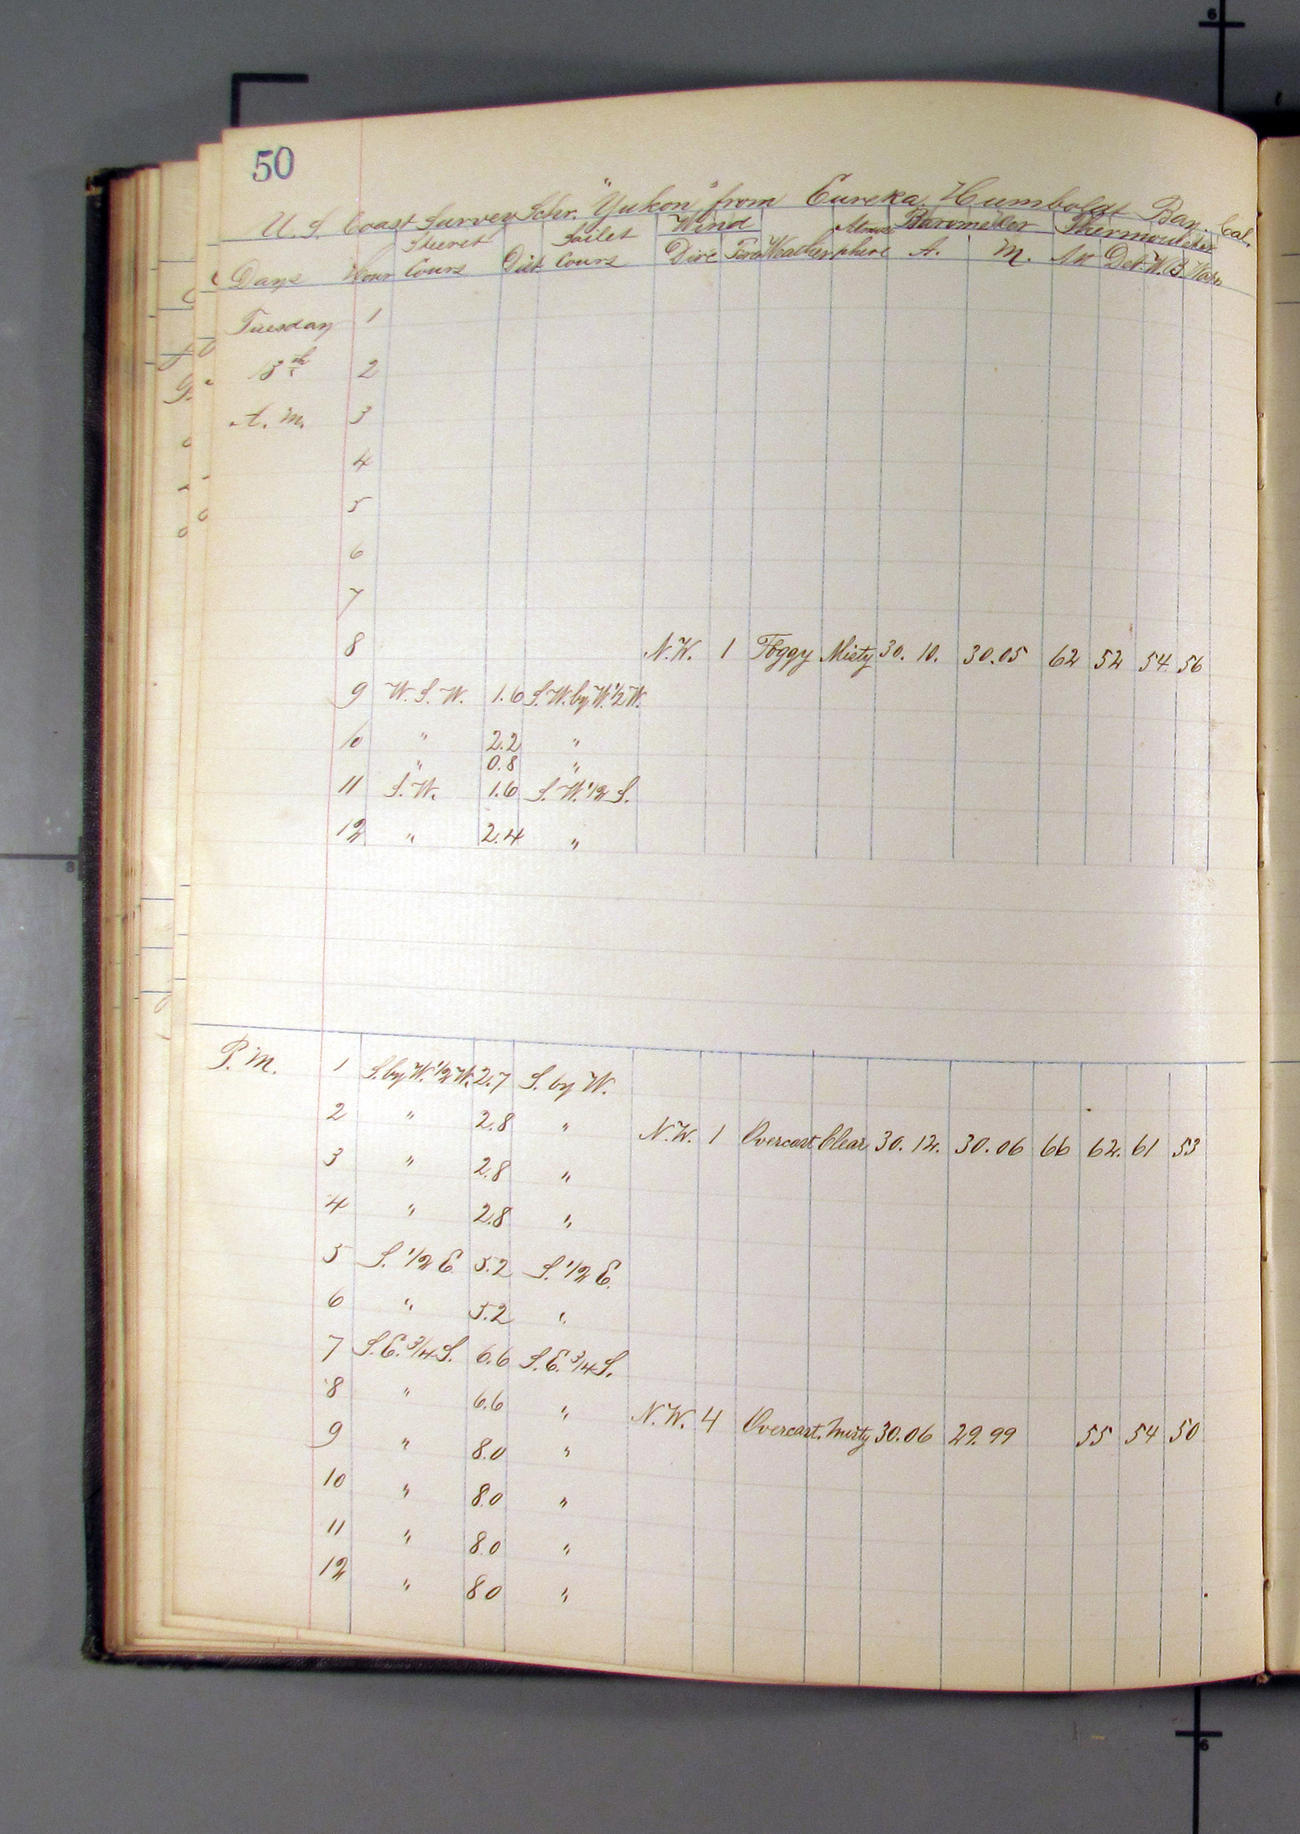 50
U. S. Coast Survey Schr. "Yukon" from Eureka, Humboldt Bay, Cal.
Steered Sailed Wind Atmos Barometer Thermometer
Days Hour Cours Dist Cours Dire Force Weather phere A. M. Att Det. W.B. Water
Tuesday 1
13th 2
A. M. 3
4
5
6
7
8 N.W. 1 Foggy Misty 30.10. 30.05 62 52 54 56
9 W. S. W. 1.6 S.W. by W. 1/2 W.
10 " 2.2 "
" 0.8 "
11 S. W. 1.6 S. W. 1/2 S.
12 " 2.4 "
P. M. 1 S. by W. 1/2 W. 2.7 S. by W.
2 " 2.8 " N.W. 1 Overcast Clear 30.12. 30.06 66 62. 61 53
3 " 2.8 "
4 " 2.8 "
5 S. 1/2 E 5.2 S. 1/2 E.
6 " 5.2 "
7 S.E. 3/4 S. 6.6 S.E. 3/4 S.
8 " 6.6 " N.W. 4 Overcast. Misty 30.06 29.99 55 54 50
9 " 8.0 "
10 " 8.0 "
11 " 8.0 "
12 " 8.0 "